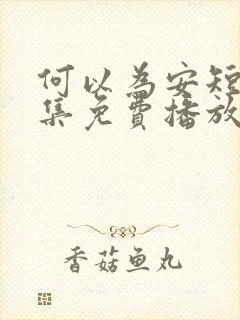 何以为安短
集免费播放
香菇鱼丸